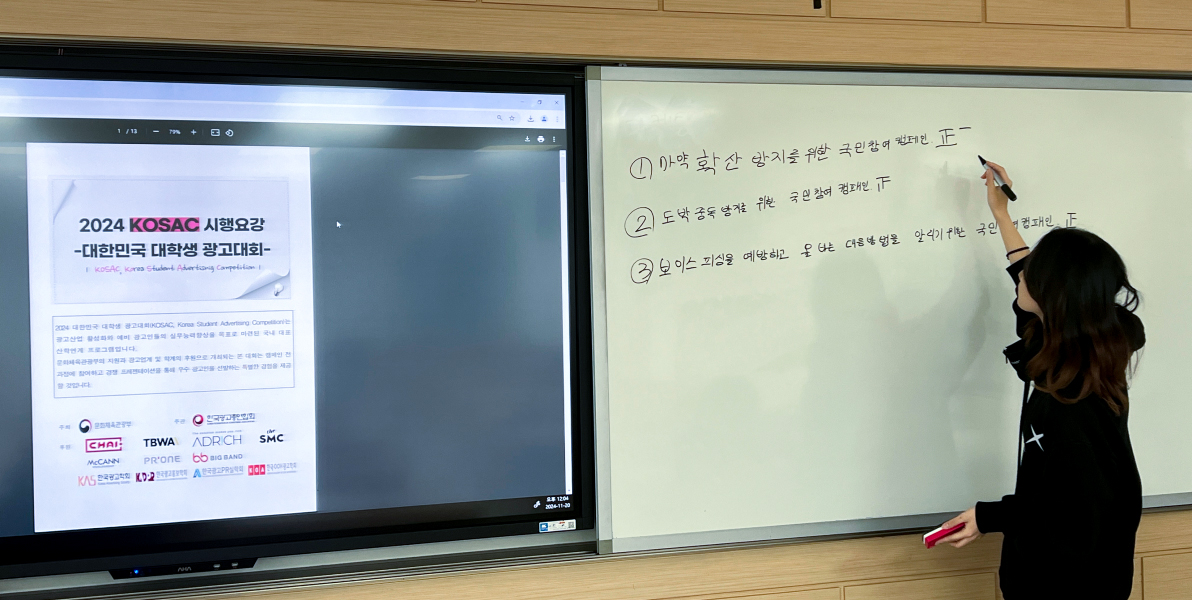 1 / 13
79%
2024 KOSAC 시행요강
-대한민국 대학생 광고대회-
KOSAC, Korea Student Advertising Competition
2024 대한민국 대학생 광고대회(KOSAC, Korea Student Advertising Competition)는
광고산업 활성화와 예비 광고인들의 실무능력향상을 목표로 마련된 국내 대표
산학연계 프로그램입니다.
문화체육관광부의 지원과 광고업계 및 학계의 후원으로 개최되는 본 대회는 캠페인 전
과정에 참여하고 경쟁 프레젠테이션을 통해 우수 광고인을 선발하는 특별한 경험을 제공
할 것입니다.
문화체육관광부
한국광고총연합회
CHAI
TBWA
ADRICH
SMC
McCANN
PR*ONE
bb BIG BAND
KAS 한국광고학회
한국광고홍보학회
한국광고PR실학회
한국OOH광고학회
오후 12:04
2024-11-20
AHA
① 마약 확산 방지를 위한 국민참여 캠페인 正一
② 도박 중독 방지를 위한 국민참여 캠페인
③ 보이스피싱을 예방하고 올바른 대응방법을 알리기 위한 국민 여 캠페인